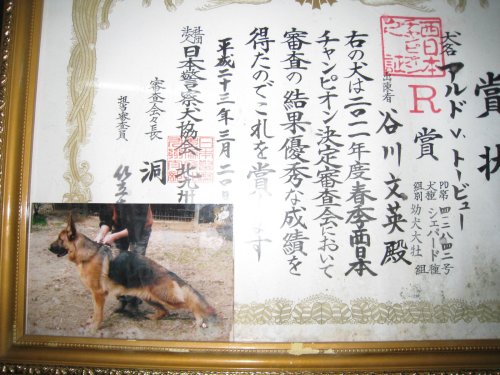 賞状
犬名 アルド V. トービュー
PD第四二八四二号
犬種 シェパード種
組別 幼犬大牡組
西日本
チャンピオン
之証
R賞
出陳者 谷川文英殿
右の犬は二〇一一年度春季西日本
チャンピオン決定審査会において
審査の結果優秀な成績を
得たのでこれを賞
平成二十三年三月二十
日本警察犬協会 北九州
審査会々長 洞
担当審査員